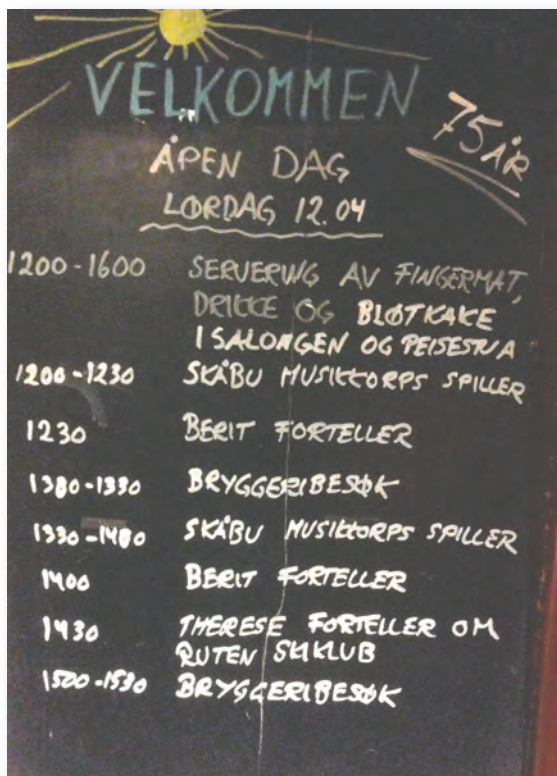 VELKOMMEN
75 ÅR
ÅPEN DAG
LØRDAG 12.04
1200-1600 SERVERING AV FINGERMAT,
DRICKE OG BLØTKAKE
I SALONGEN OG PEISESTUA
1200-1230 SKÅBU MUSIKKORPS SPILLER
1230 BERIT FORTELLER
1300-1330 BRYGGERIBESØK
1330-1400 SKÅBU MUSIKKORPS SPILLER
1400 BERIT FORTELLER
1430 THERESE FORTELLER OM
RUTEN SKIKLUB
1500-1530 BRYGGERIBESØK